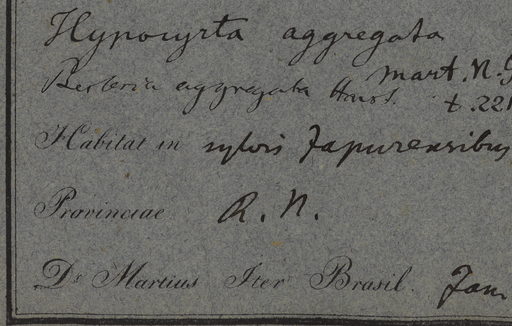 Hypocyrta aggregata
Mart. N. G
Besleria aggregata
t. 221
Habitat in sylvis Japurensibus
Provinciae R. N.
Dr Martius Iter Brasil. Jan